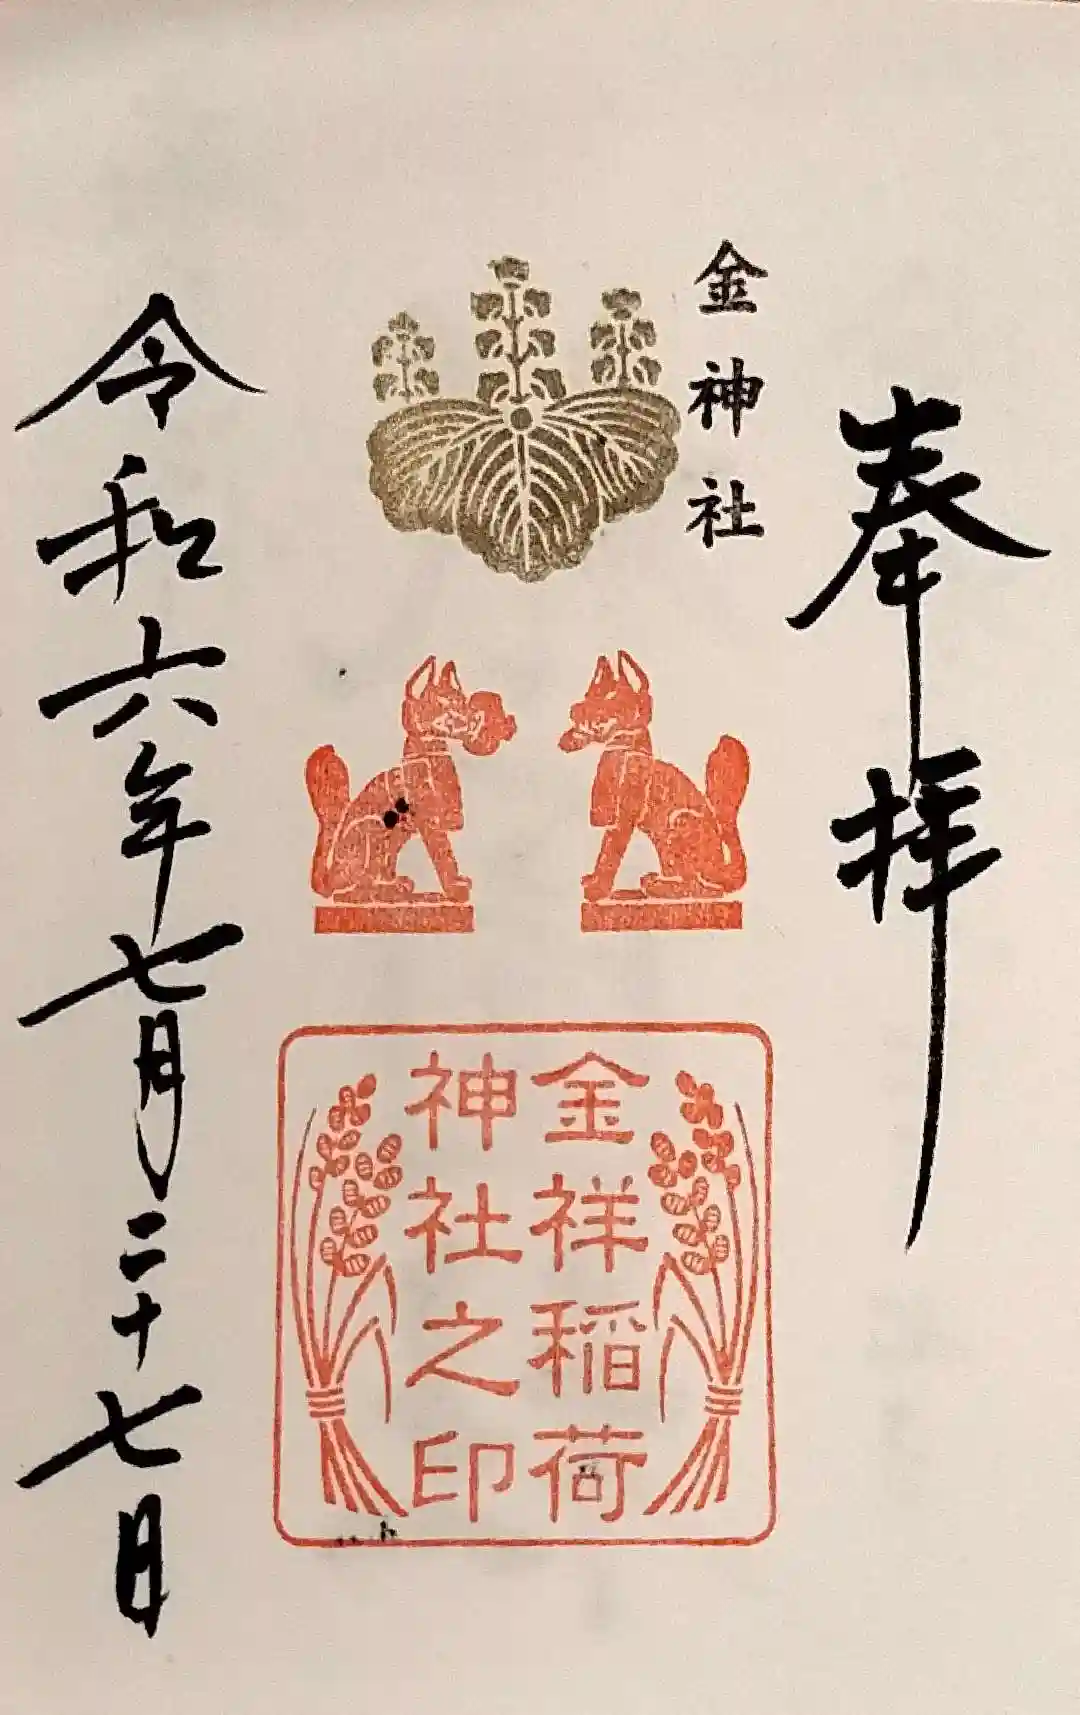 奉拝
金神社
金祥稲荷
神社之印
令和六年七月二十七日